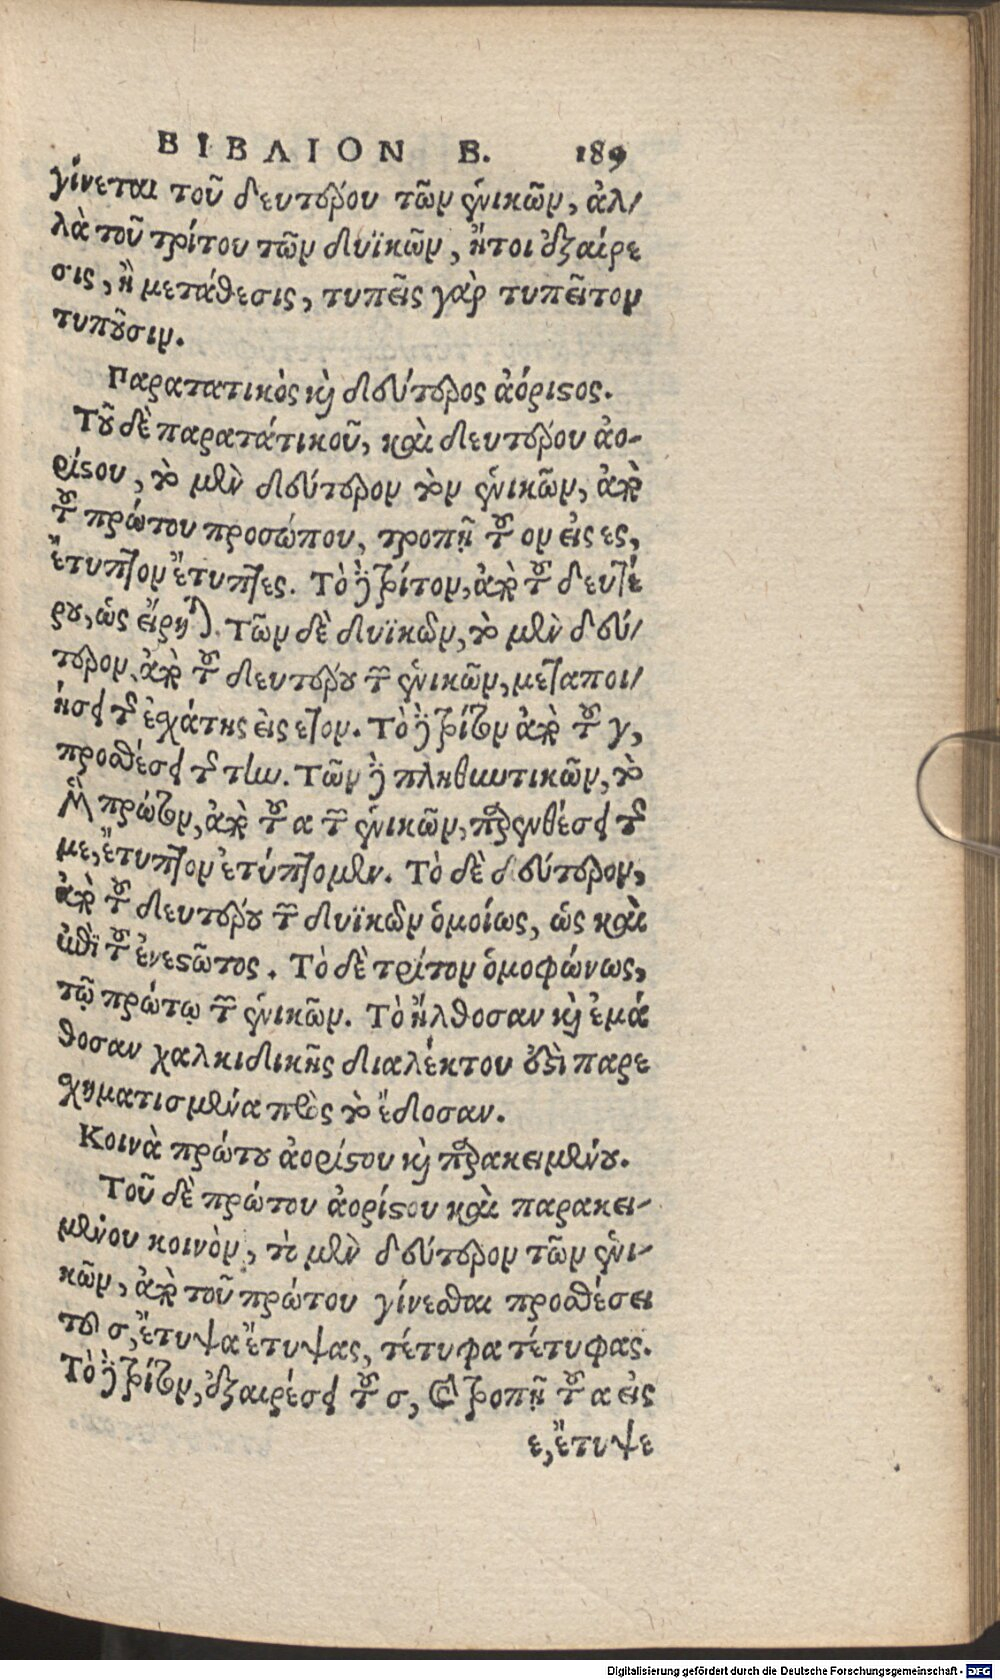 ΒΙΒΛΙΟΝ Β. 189
γίνεται τοῦ δευτέρου τῶν ἑνικῶν, ἀλ/
λὰ τοῦ τρίτου τῶν δυϊκῶν, ἤτοι ἐξαίρε
σις, ἢ μετάθεσις, τυπεῖς γὰρ τυπεῖτον
τυποῦσιν.
Παρατατικὸς καὶ δεύτερος ἀόριστος.
Τοῦ δὲ παρατάτικοῦ, καὶ δευτέρου ἀο-
ρίστου, τὸ μὲν δεύτερον τὸν ἑνικῶν, ἀπὸ
τοῦ πρώτου προσώπου, τροπῇ τοῦ ον εἰς ες,
ἔτυπτον ἔτυπτες. Τὸ δὲ τρίτον, ἀπὸ τοῦ δευτέ
ρου, ὡς εἴρηται. Τῶν δὲ δυϊκῶν, τὸ μὲν δεύ/
τερον, ἀπὸ τοῦ δευτέρου τῶν ἑνικῶν, μεταποι/
ήσει τῆς ἐσχάτης εἰς ετον. Τὸ δὲ τρίτον ἀπὸ τοῦ γ,
προσθέσει τῆς την. Τῶν δὲ πληθυντικῶν, τὸ
μὲν πρῶτον, ἀπὸ τοῦ α τῶν ἑνικῶν, παρενθέσει τῆς
με, ἔτυπτον ἐτύπτομεν. Τὸ δὲ δεύτερον,
ἀπὸ τοῦ δευτέρου τῶν δυϊκῶν ὁμοίως, ὡς καὶ
ἐπὶ τοῦ ἐνεστῶτος. Τὸ δὲ τρίτον ὁμοφώνως,
τῷ πρώτῳ τῶν ἑνικῶν. Τὸ ἤλθοσαν καὶ ἐμά
θοσαν χαλκιδικῆς διαλέκτου ἐστὶ παρε
σχηματισμένα πρὸς τὸ ἔδοσαν.
Κοινὰ πρώτου ἀορίστου καὶ παρακειμένου.
Τοῦ δὲ πρώτου ἀορίστου καὶ παρακει-
μένου κοινὸν, τὸ μὲν δεύτερον τῶν ἑνι-
κῶν, ἀπὸ τοῦ πρώτου γίνεσθαι προσθέσει
τοῦ σ, ἔτυψα ἔτυψας, τέτυφα τέτυφας.
Τὸ δὲ τρίτον, ἐξαιρέσει τοῦ σ, καὶ τροπῇ τοῦ α εἰς
ε, ἔτυψε
Digitalisierung gefördert durch die Deutsche Forschungsgemeinschaft - DFG